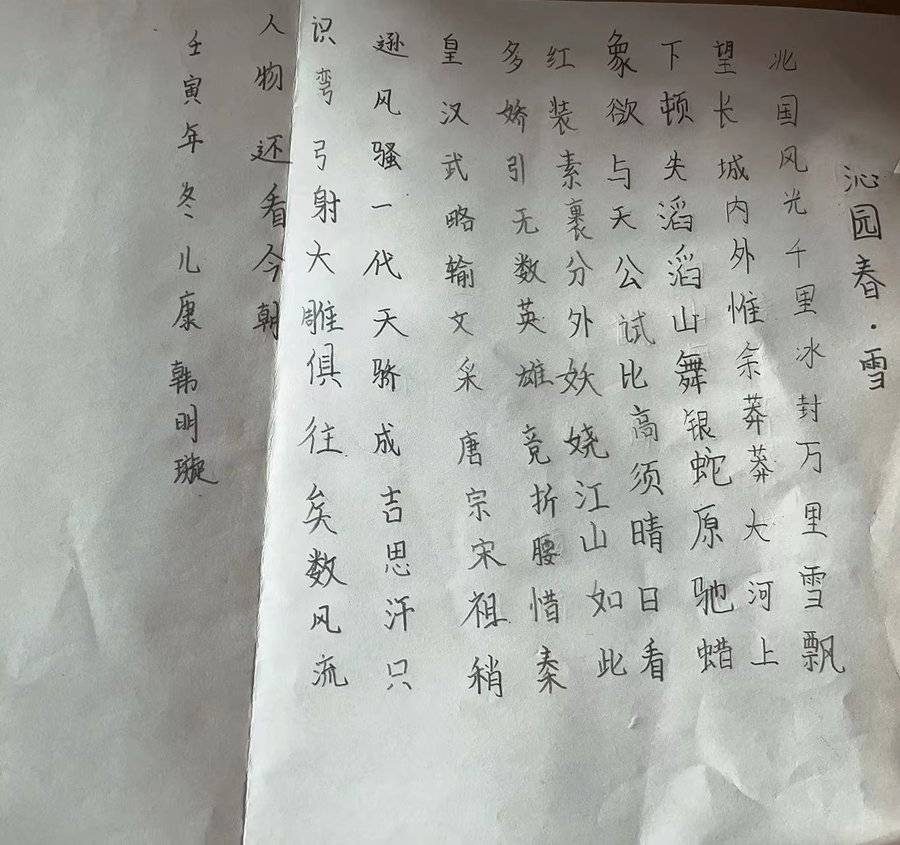 沁园春·雪
北国风光千里冰封万里雪飘
望长城内外惟余莽莽大河上
下顿失滔滔山舞银蛇原驰蜡
象欲与天公试比高须晴日看
红装素裹分外妖娆江山如此
多娇引无数英雄竞折腰惜秦
皇汉武略输文采唐宗宋祖稍
逊风骚一代天骄成吉思汗只
识弯弓射大雕俱往矣数风流
人物还看今朝
壬寅年冬儿康韩明璇